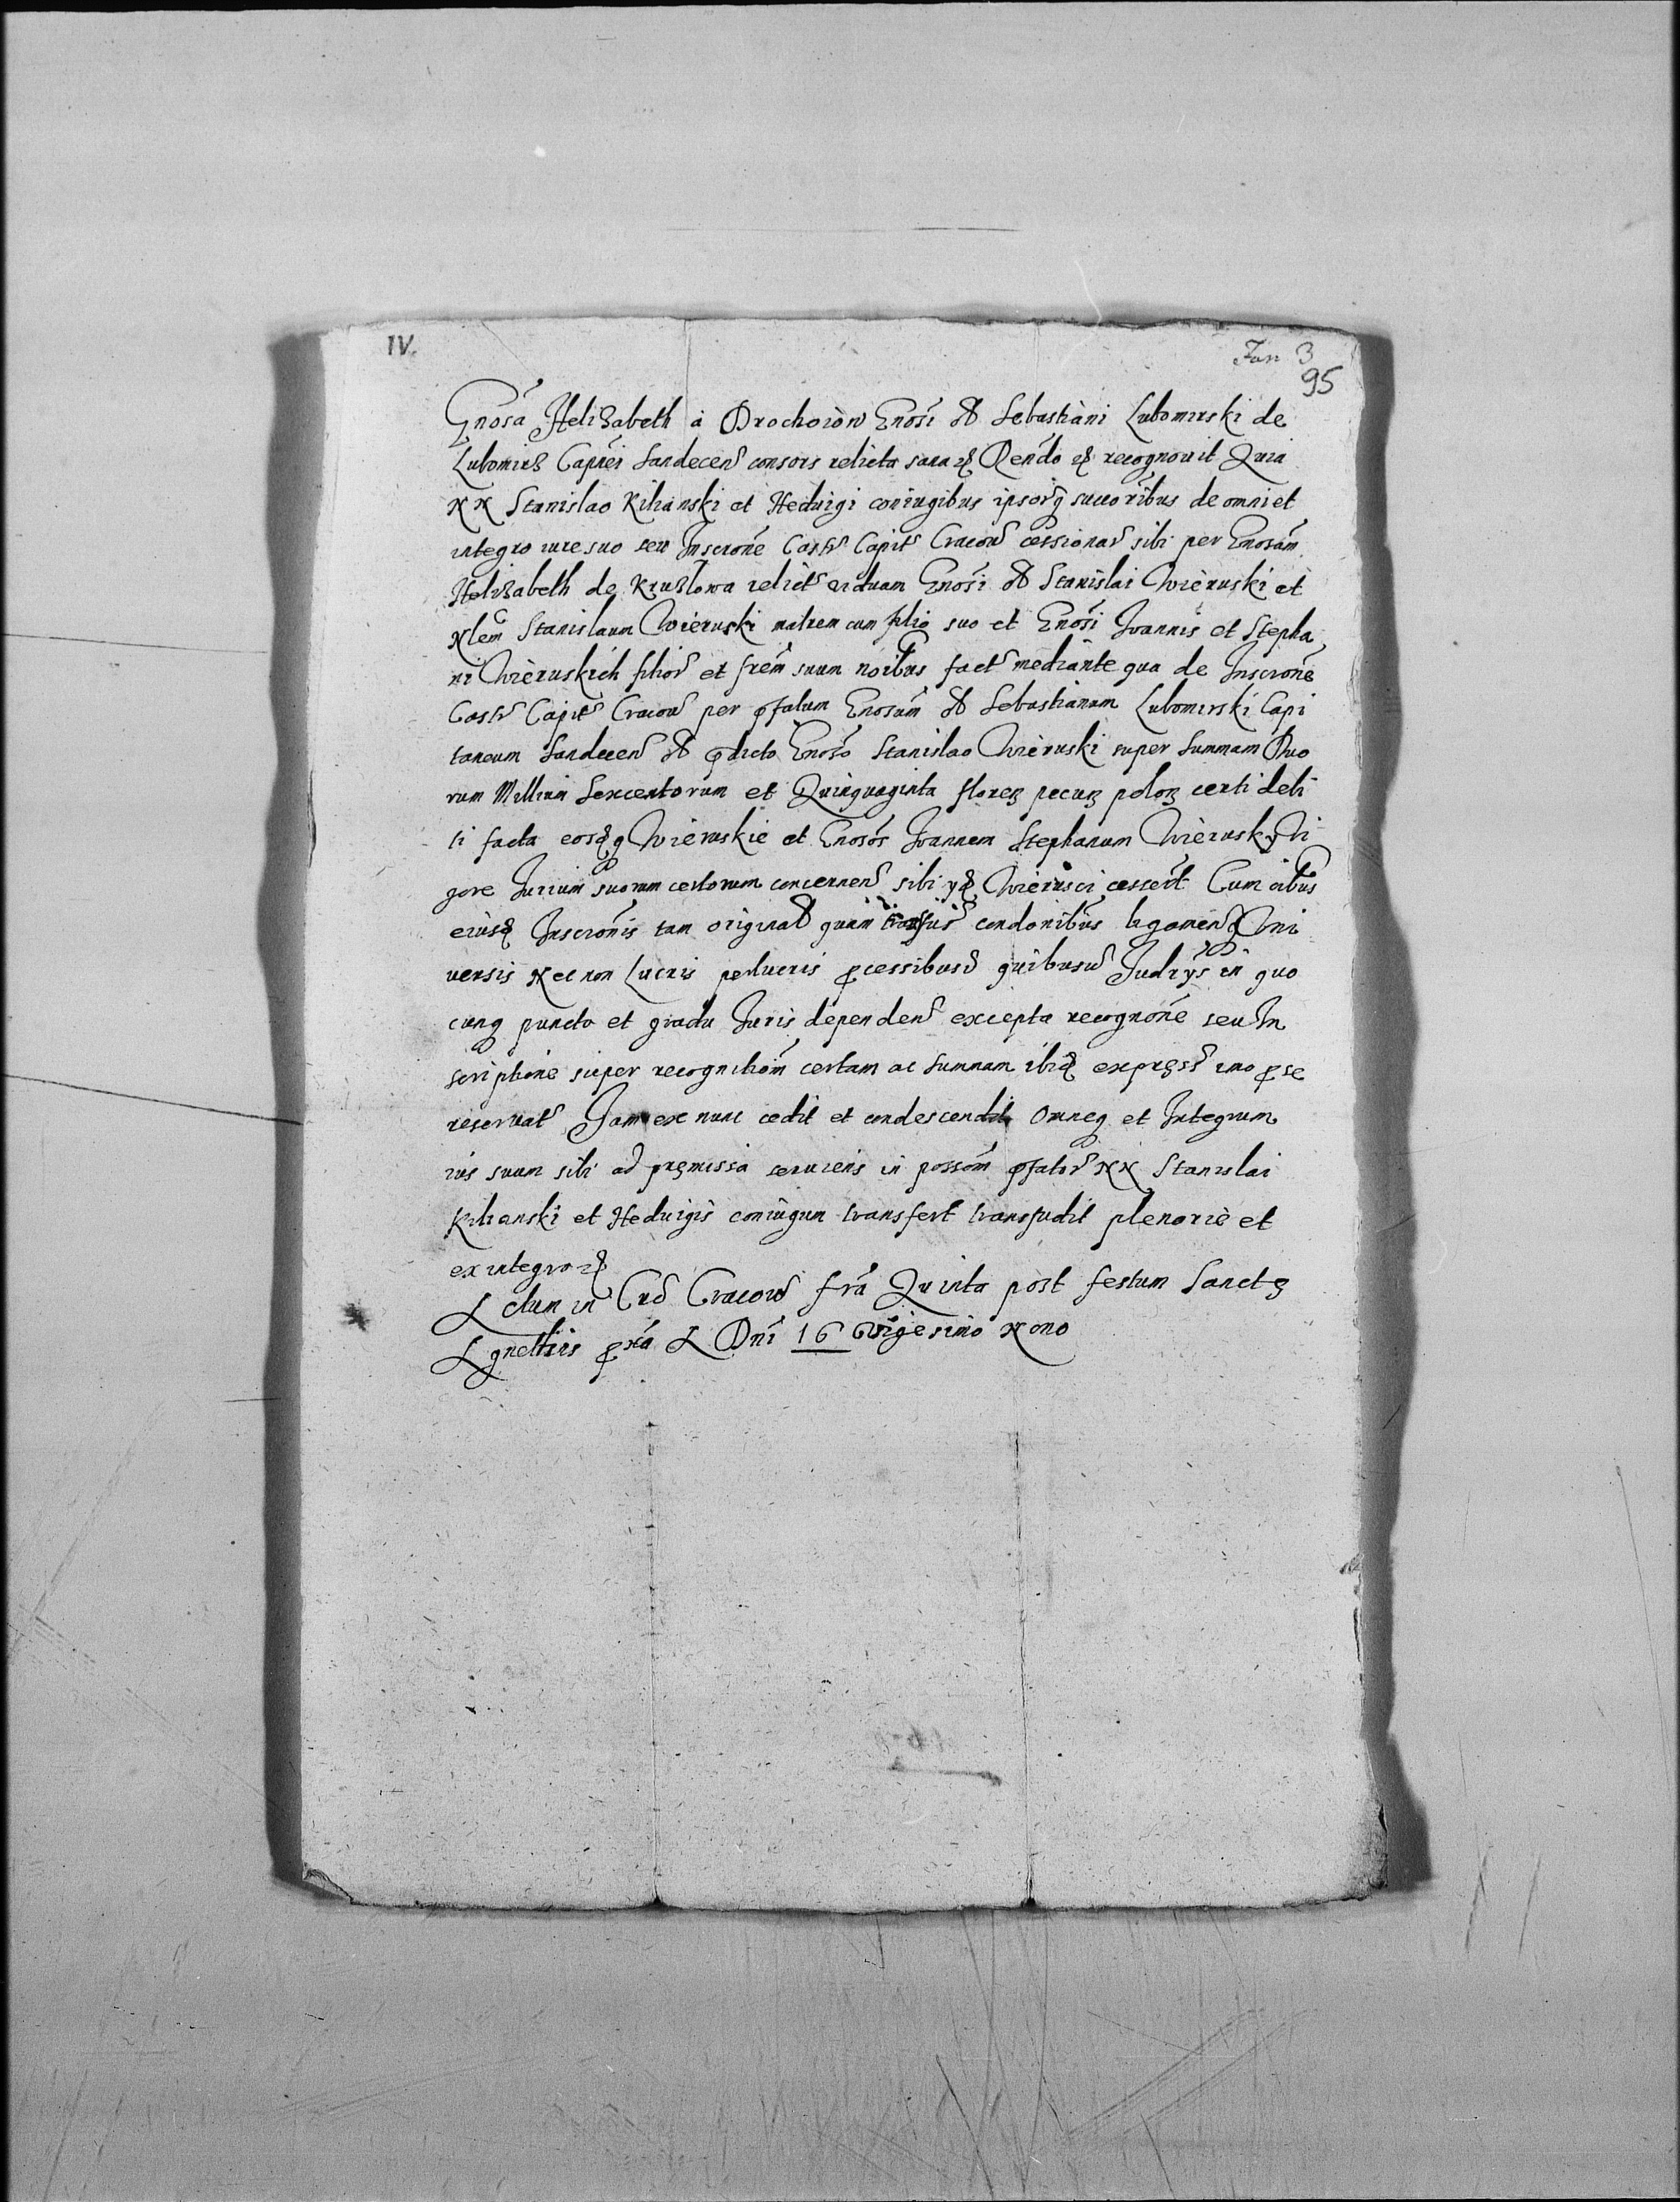 IV.
Jan 3
95
Gnosa Helizabeth a Drochoiow Gnosi Sebastiani Lubomirski de
Lubomirz Capnei Sandecen consors relicta sana Rendo recognouit Quia
NN Stanislao Kilianski et Heduigi coniugibus ipsorq succoribus de omni et
integro iure suo seu Inscrone Castr Capit Cracou cessionar sibi per Gnosam
Helizabeth de Kruzlowa relict viduam Gnosi Stanislai Wieruski et
Nlem Stanislaum Wieruski matrem cum filio suo et Gnosi Joannis et Stepha
ni Wieruskich filior et frem suum noibus fact mediante qua de Inscrone
Castr Capit Cracou per pfatum Gnosum Sebastianum Lubomirski Capi
taneum Sandecen pdicto Gnoso Stanislao Wieruski super Summam Duo
rum Millium Sexcentorum et Quinquaginta floren pecun polon certi debi
ti facta eosdq Wieruskie et Gnosos Joannem Stephanum Wierusky Vi
gore Jurium suorum certorum concernen sibi yd Wierusci cesserut Cum oibus
eiusd Inscronis tam original quam condonibus ligamen Vni
versis Nec non Lucris perlucris pcessibus quibusu Judiys in quo
cunq puncto et gradu Juris dependen excepta recognone seu In
scriptione super recognitiom certam ac summam ibid express pse
reservat Jam ex nunc cedit et condescendit Omneq et Integrum
ius suum sibi ad premissa seruiens in possom pfator NN Stanislai
Kilianski et Heduigis coniugum transfert transfudit plenarie et
ex integro
Actum in Cracou fra Quinta post festum Sancte
Agnettis pxa A Dni 16 Vigesimo Nono